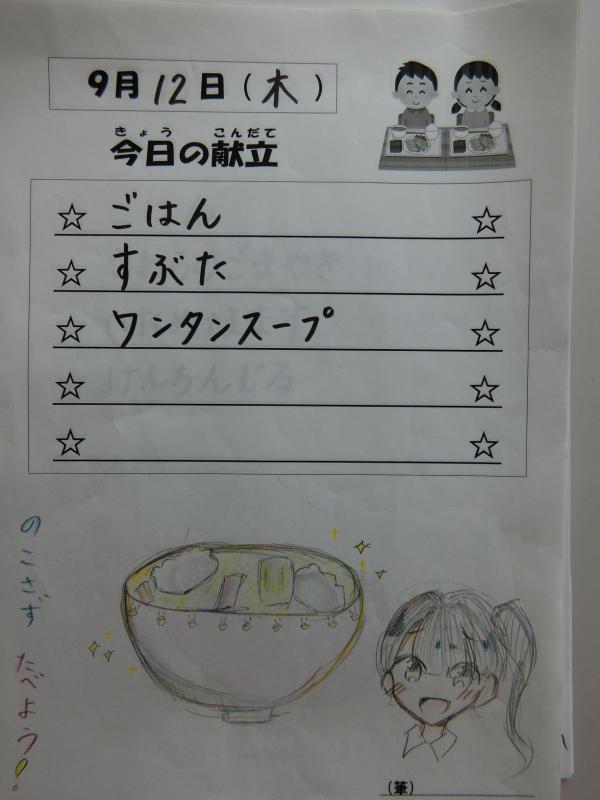 9月12日(木)
きょう こんだて
今日の献立
☆ ごはん ☆
☆ すぶた ☆
☆ ワンタンスープ ☆
☆ ☆
☆ ☆
のこさず たべよう!
(筆)